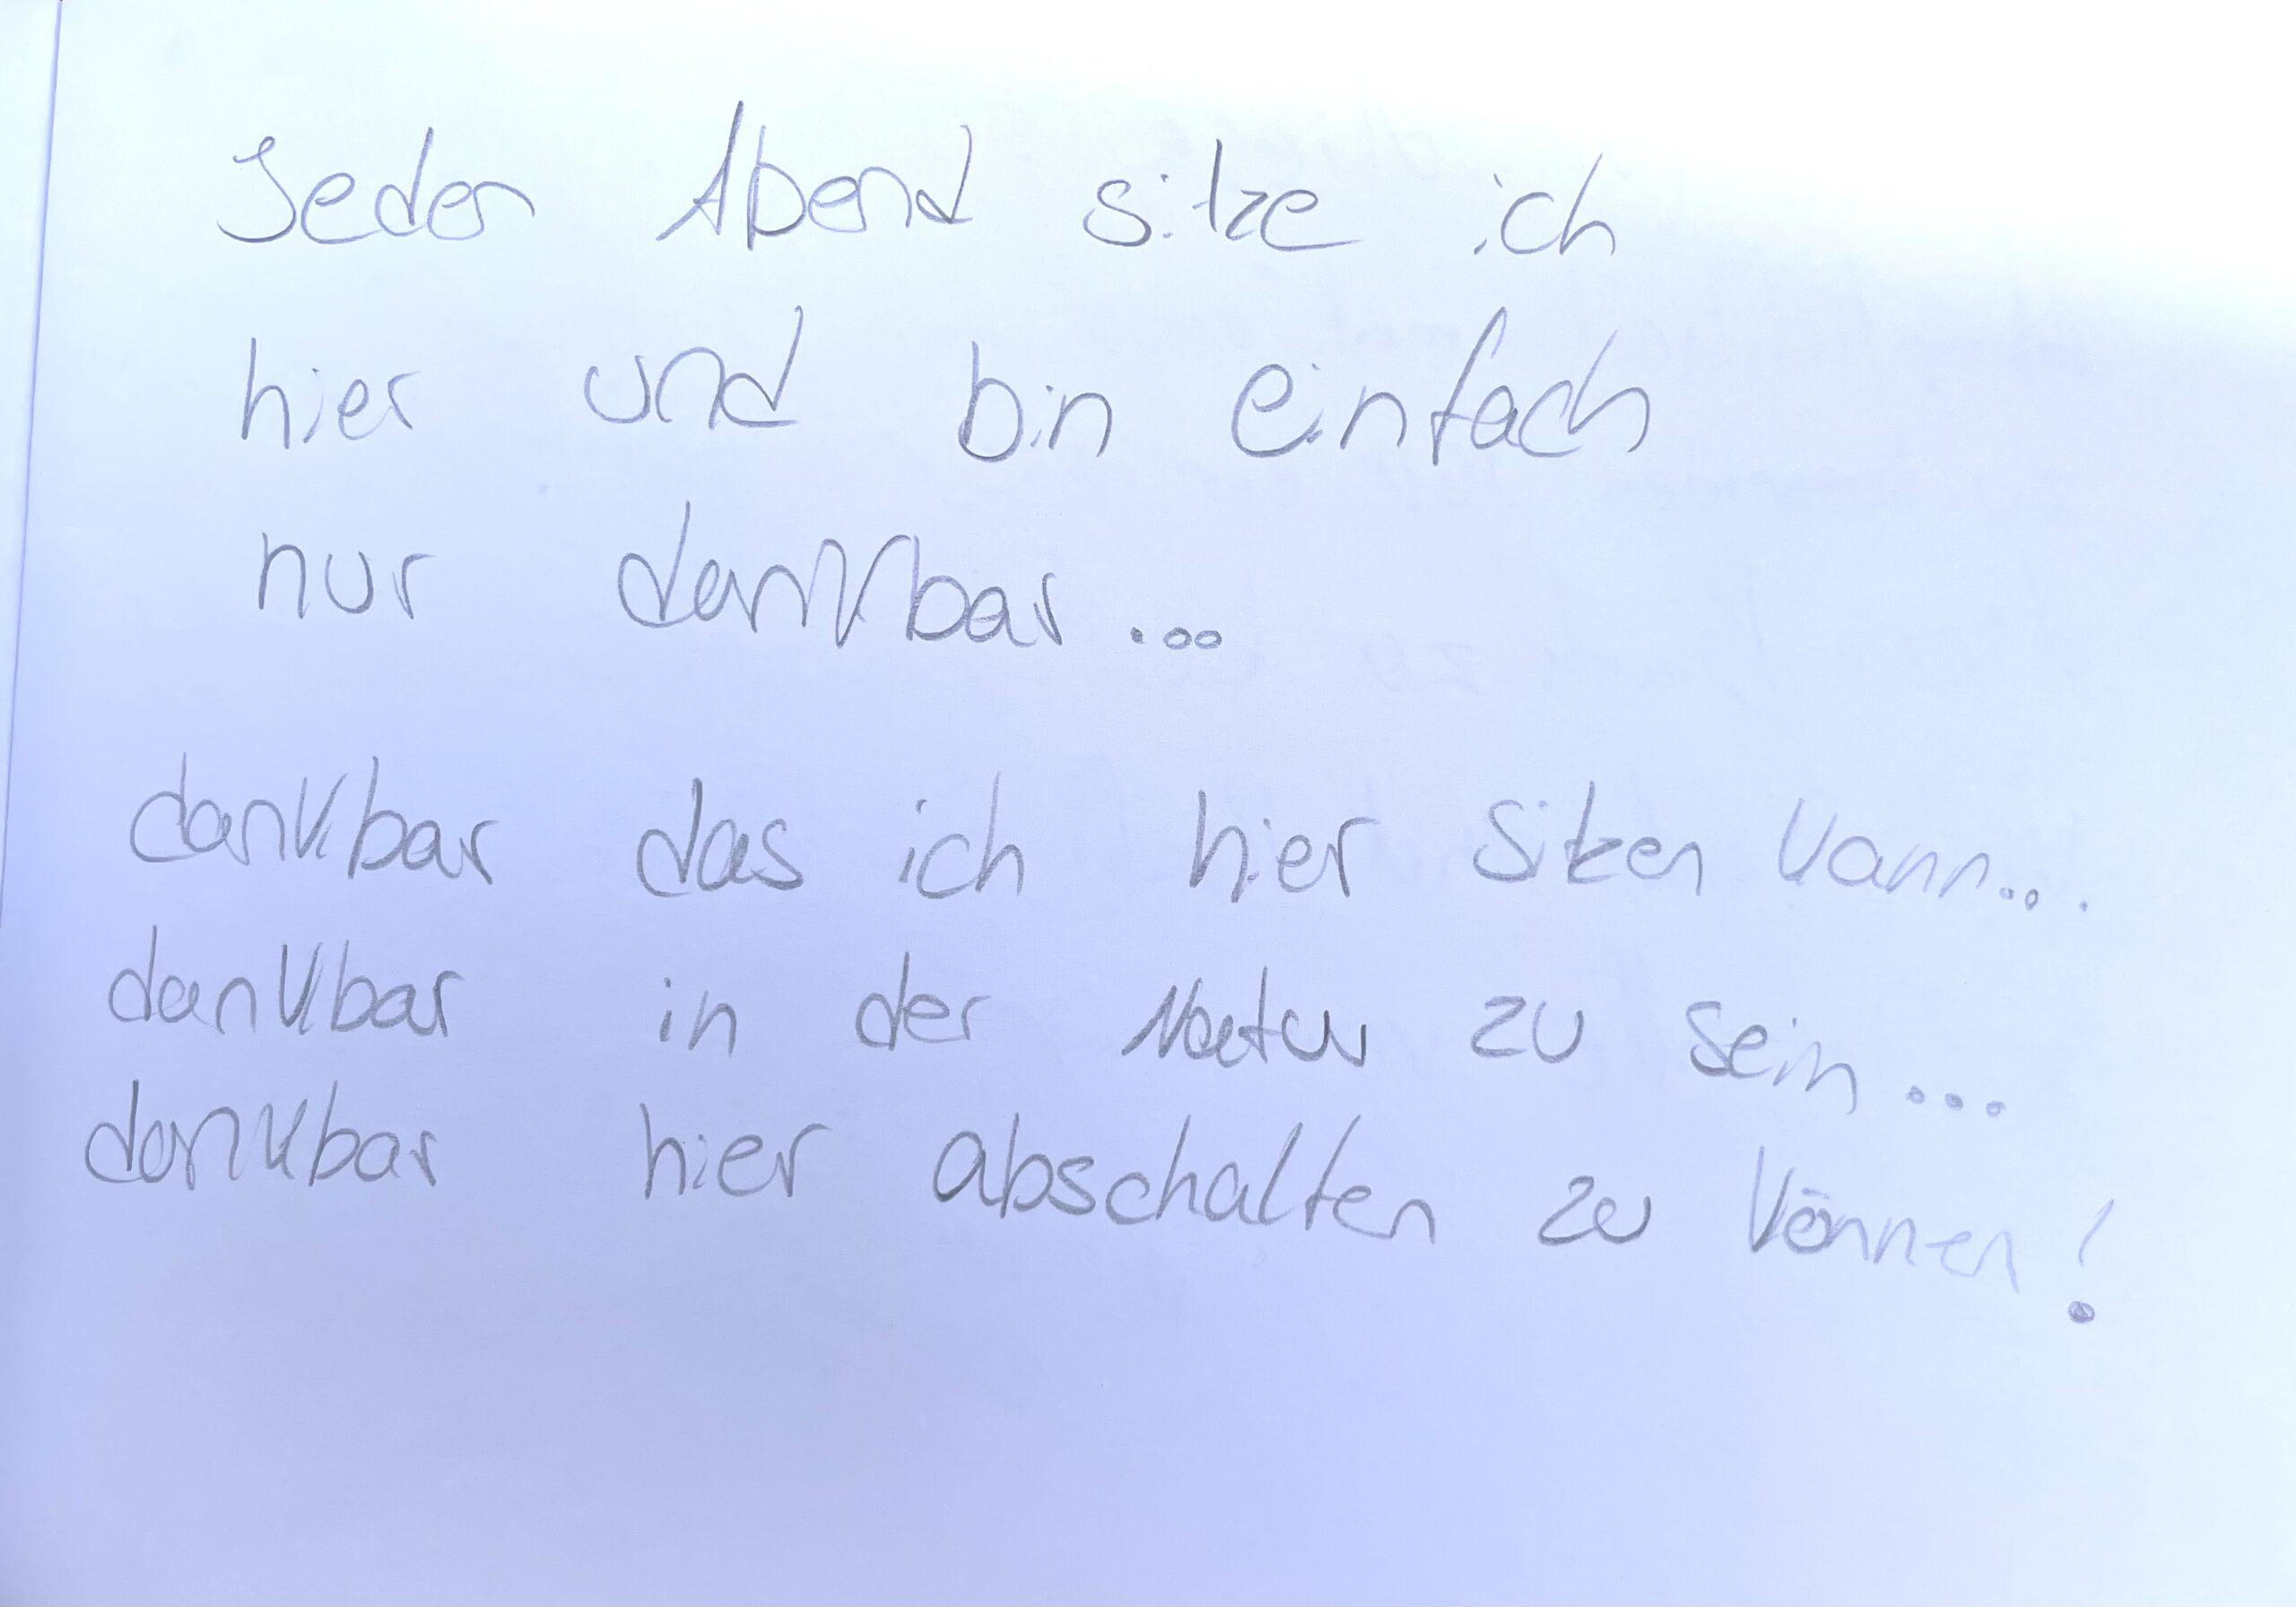 Jeden Abend sitze ich
hier und bin einfach
nur dankbar...
dankbar das ich hier sitzen kann...
dankbar in der Natur zu sein...
dankbar hier abschalten zu können!